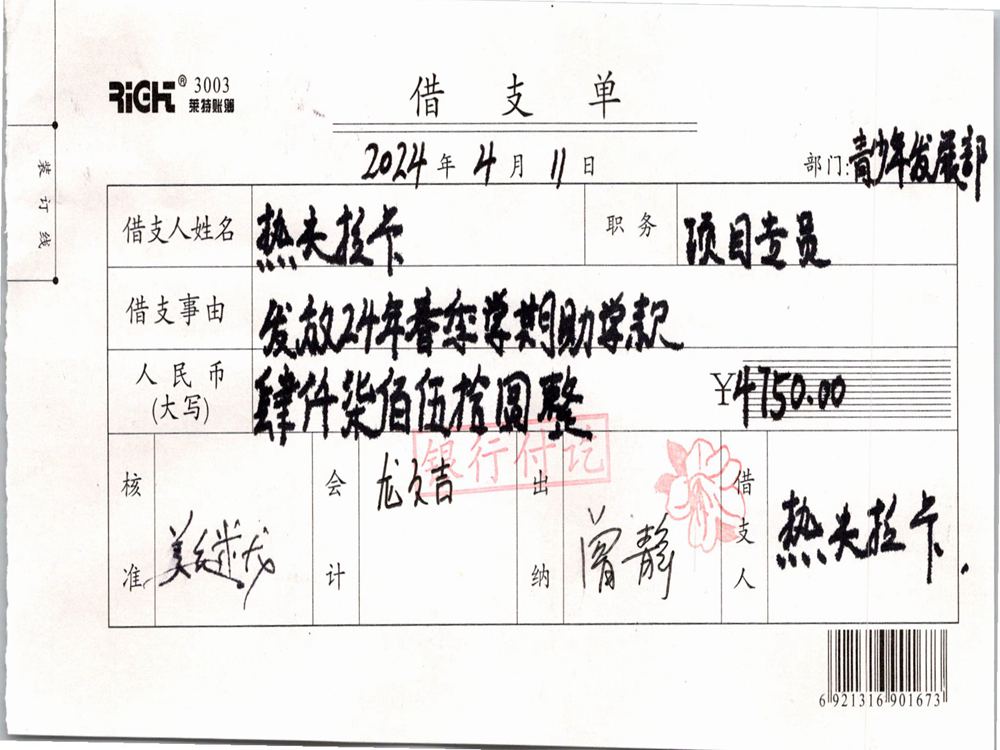 RiGHT® 3003
莱特账簿
借支单
2024年4月11日
部门:青少年发展部
装订线
借支人姓名 热夫拉卡 职务 项目专员
借支事由 发放24年春季学期助学款
人民币(大写) 肆仟柒佰伍拾圆整 ¥4750.00
银行付讫
核准 会计 龙文吉 出纳 曾静 借支人 热夫拉卡.
6 921316 901673